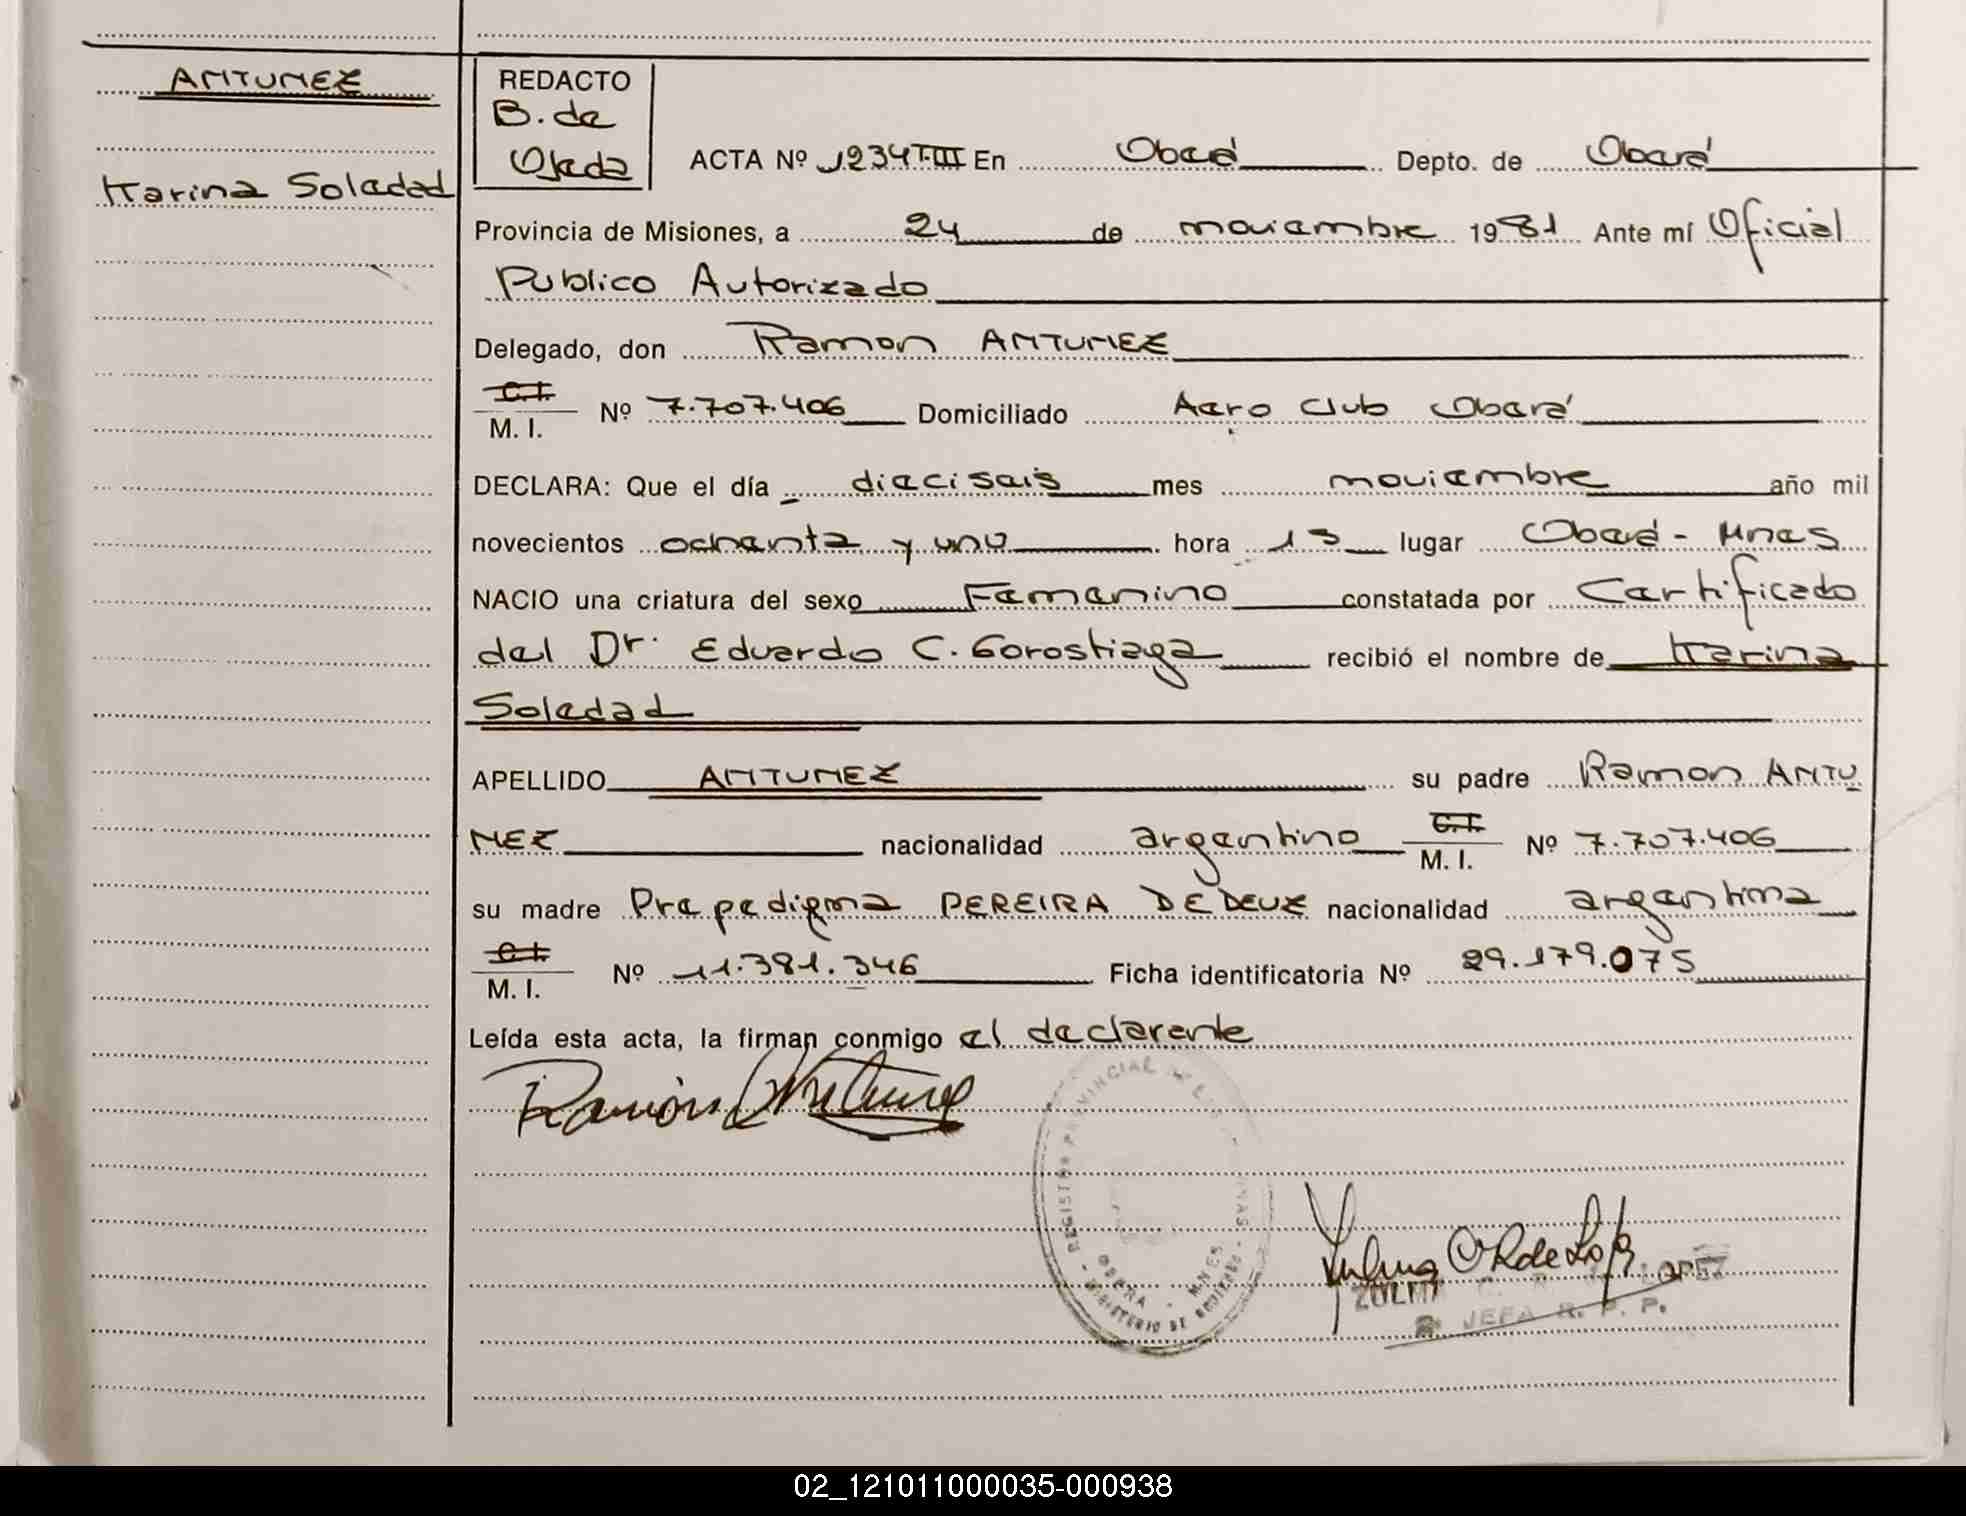 ANTUNEZ
Karina Soledad
REDACTO
B. de
Ojeda
ACTA Nº 1234 T.III En Oberá Depto. de Oberá
Provincia de Misiones, a 24 de noviembre 1981 Ante mí Oficial
Publico Autorizado
Delegado, don Ramon ANTUNEZ
C.I.
M. I. Nº 7.707.406 Domiciliado Aero Club Oberá
DECLARA: Que el día dieciseis mes noviembre año mil
novecientos ochenta y uno hora 13 lugar Oberá - Mnes
NACIO una criatura del sexo Femenino constatada por Certificado
del Dr. Eduardo C. Gorostiaga recibió el nombre de Karina
Soledad
APELLIDO ANTUNEZ su padre Ramon ANTU
NEZ nacionalidad argentino C.I. M. I. Nº 7.707.406
su madre Prepedigna PEREIRA DEDEUZ nacionalidad argentina
C.I.
M. I. Nº 11.381.346 Ficha identificatoria Nº 29.179.075
Leída esta acta, la firman conmigo el declarante
Ramón Antunez
REGISTRO PROVINCIAL DE LAS PERSONAS
OBERA - MNES
MINISTERIO DE
Zulma C R de López
ZULMA C. R. LOPEZ
JEFA R. P. P.
02_121011000035-000938